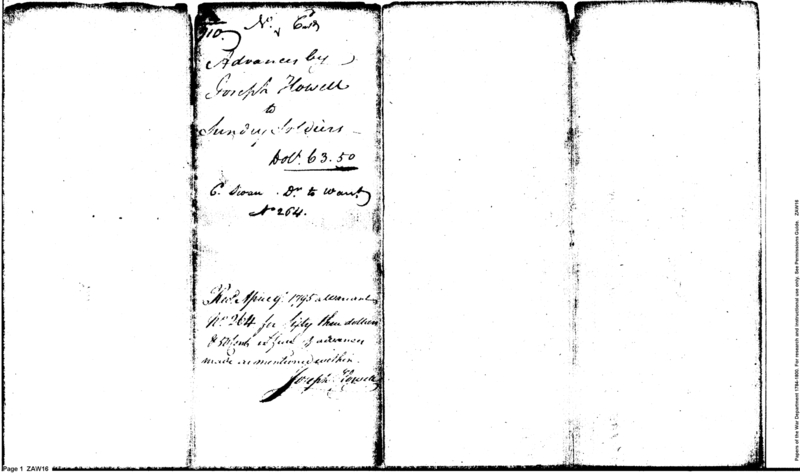 910.
No.
Advances by
Joseph Howell
to
Sundry Soldiers
Dolls. 63.50
C. Swan Dr. to Warrt.
No 264.
Recd. April 9. 1795 a Warrant
No. 264 for Sixty three dollars
& 50 Cents in full of advances
made as mentioned within
Joseph Howell
Page 1 ZAW16
Papers of the War Department 1784-1800. For research and instructional use only. See Permissions Guide. ZAW16